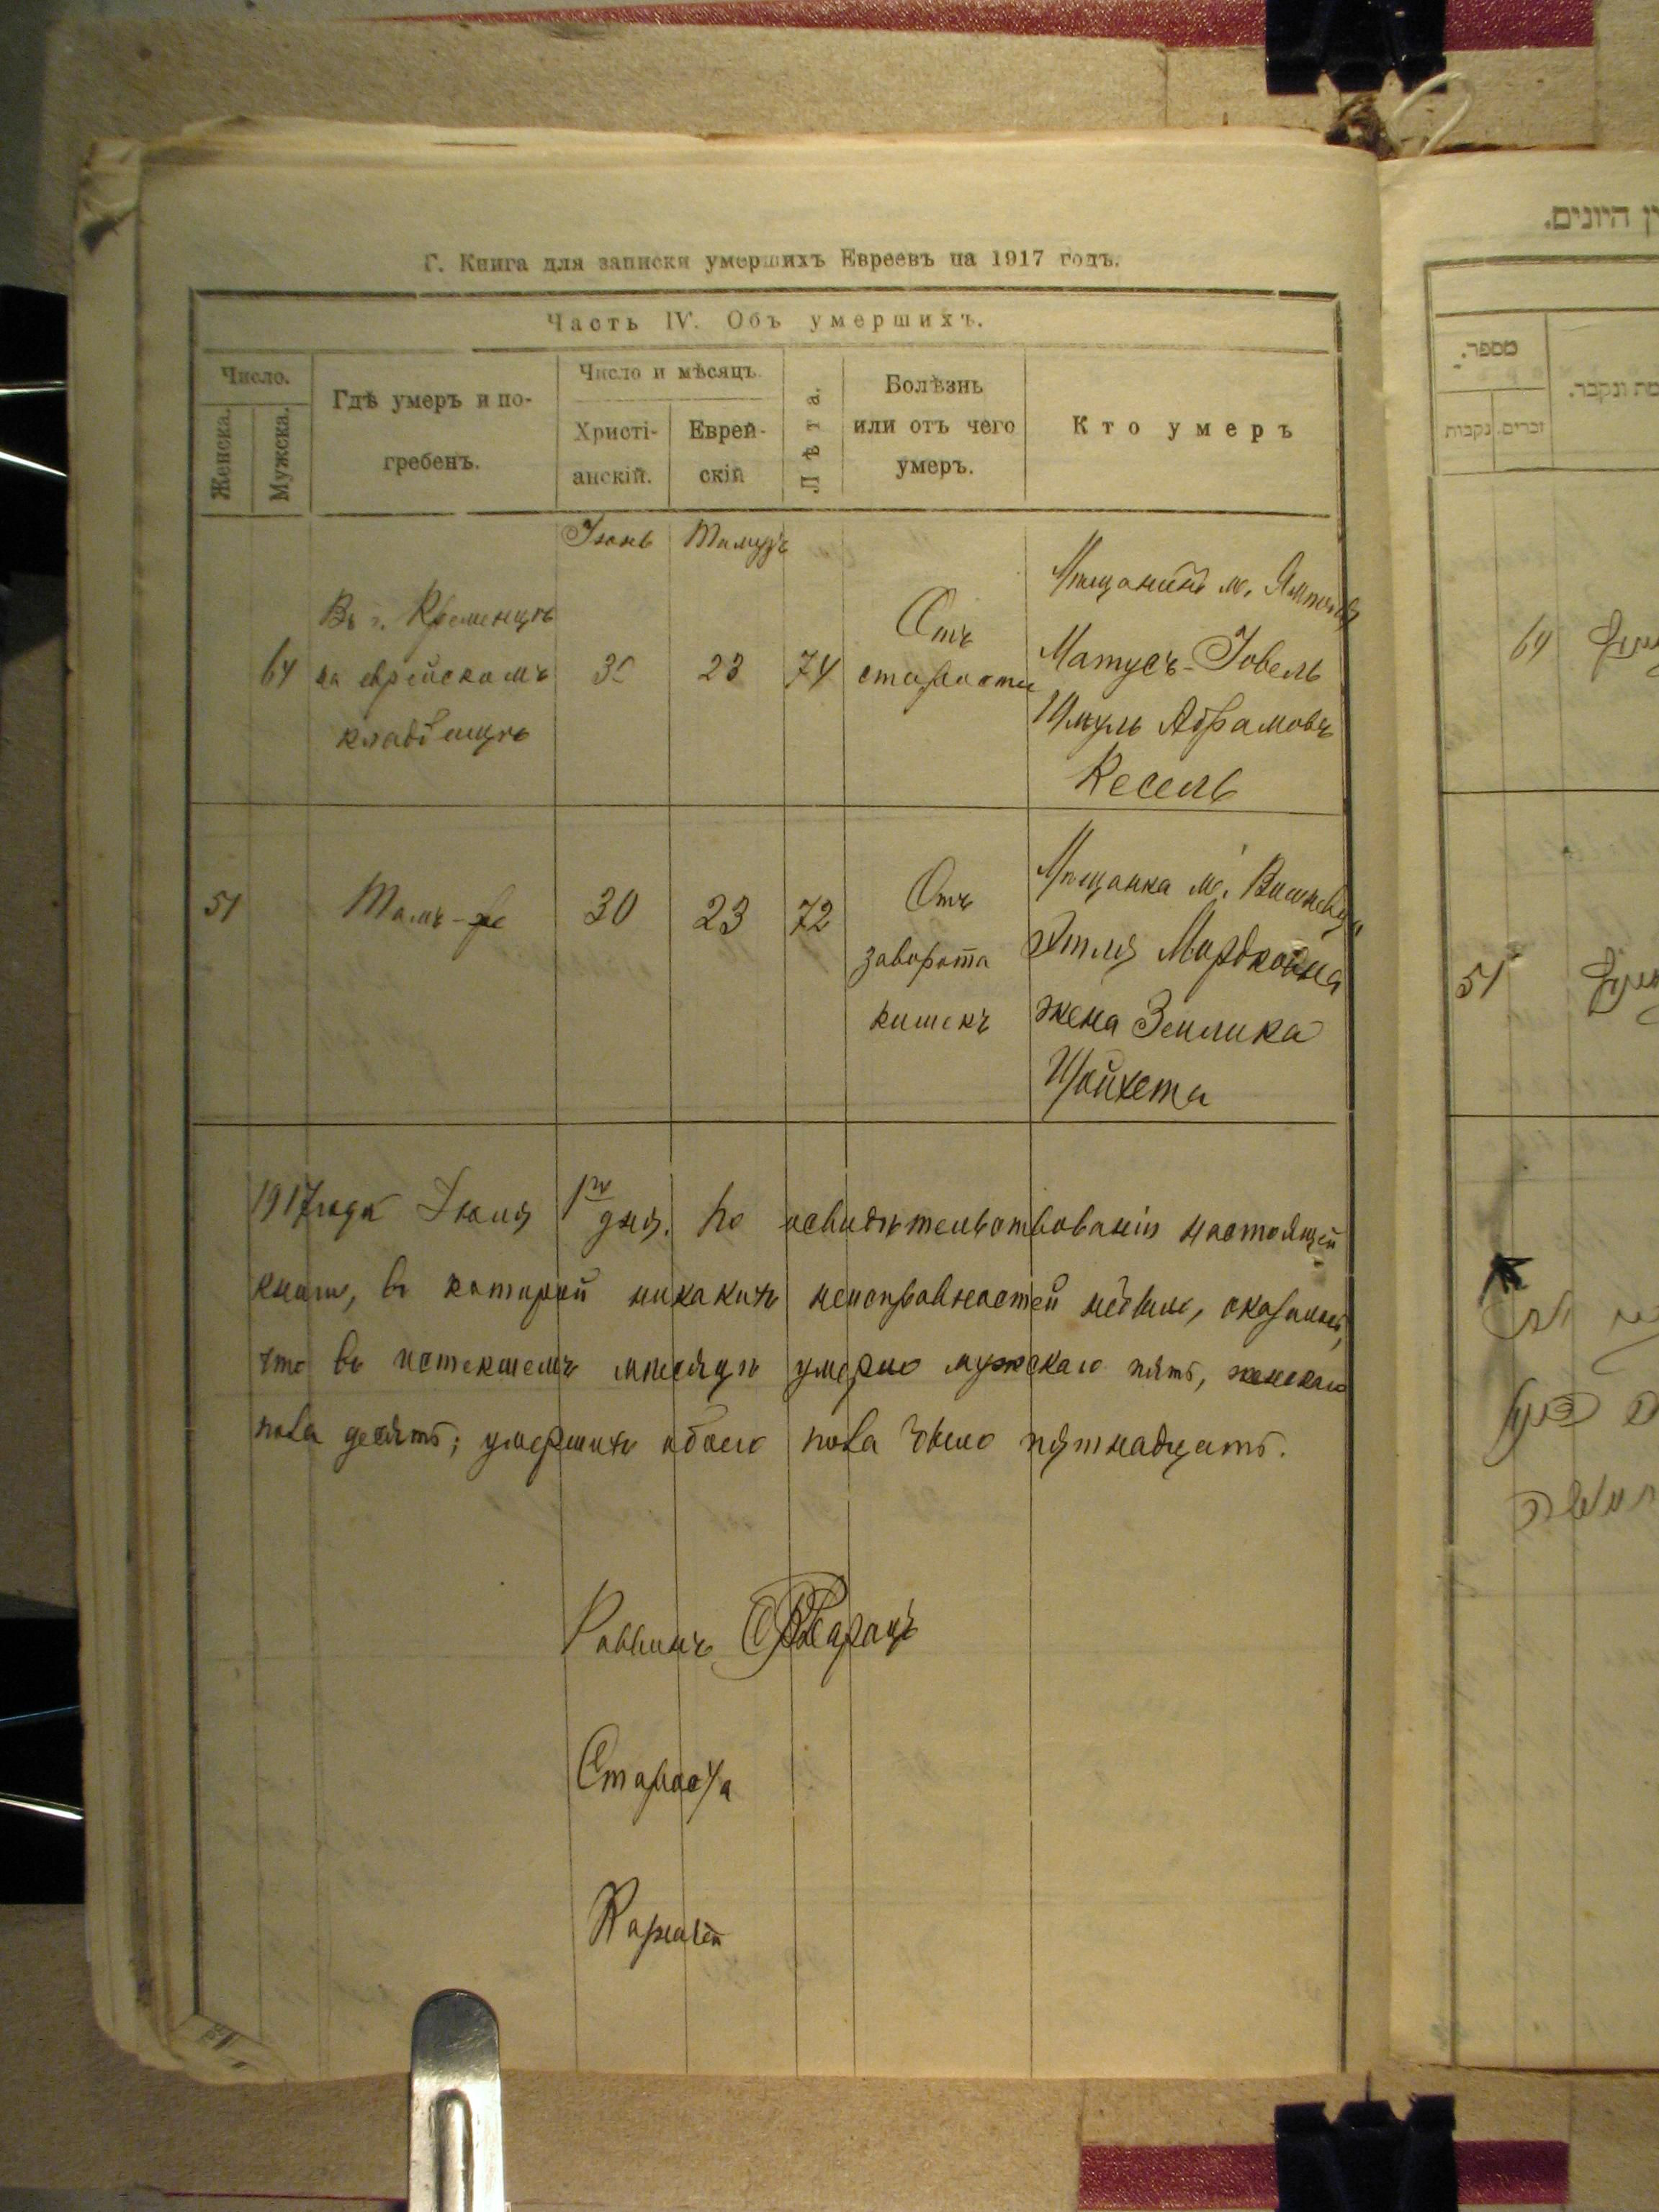 Г. Книга для записки умершихъ Евреевъ на 1917 годъ.
Часть IV. Объ умершихъ.
Число.
Женска.
Мужска.
Гдѣ умеръ и по-
гребенъ.
Число и мѣсяцъ.
Христі-
анскій.
Еврей-
скій
Лѣта.
Болѣзнь
или отъ чего
умеръ.
Кто умеръ
Іюнь
Тамузъ
64
Въ г. Кременцѣ
на еврейскомъ
кладбищѣ
30
23
74
Отъ
старости
Мѣщанинъ м. Ямполя
Матусъ-Іовель
Шмуль Абрамовъ
Кесель
51
Тамъ-же
30
23
72
Отъ
заворота
кишекъ
Мѣщанка м. Вишневца
Этля Мордковна
жена Зейлика
Шойхета
1917 года Іюля 1го дня. По освидѣтельствованіи настоящей
книги, въ которой никакихъ неисправностей не было, оказалось,
что въ истекшемъ мѣсяцѣ умерло мужскаго пять, женскаго
пола десять; умершихъ обоего пола было пятнадцать.
Раввинъ
Староста
Казначей
ין היונים.
מספר.
זכרים.
נקבות
מת ונקבר.
64
51